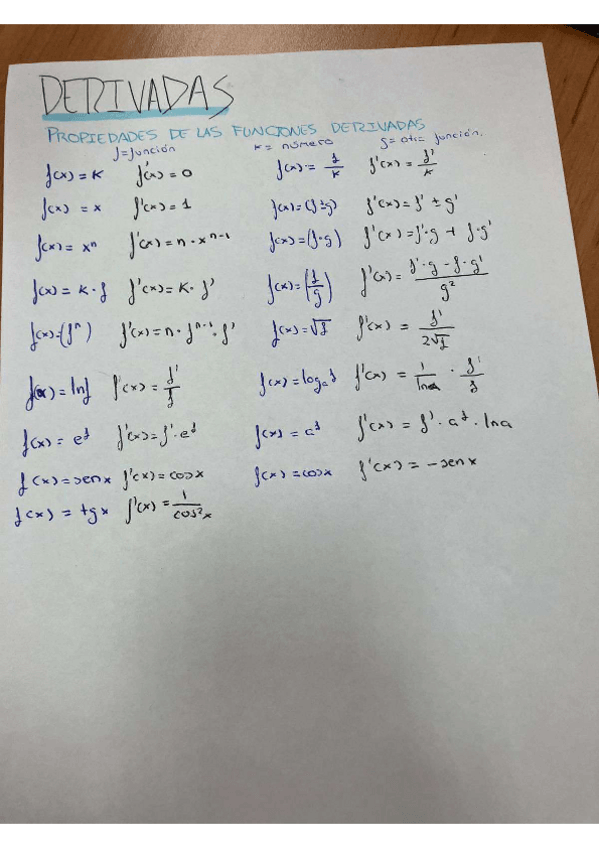 DERIVADAS
PROPIEDADES DE LAS FUNCIONES DERIVADAS
f=función k= número g= otra función.
f(x) = K f'(x) = 0 f(x) = f/k f'(x) = f'/k
f(x) = x f'(x) = 1 f(x) = (f±g) f'(x) = f' ± g'
f(x) = xⁿ f'(x) = n · xⁿ⁻¹ f(x) = (f·g) f'(x) = f'·g + f·g'
f(x) = K · f f'(x) = K · f' f(x) = (f/g) f'(x) = f'·g - f·g'/g²
f(x) = (fⁿ) f'(x) = n · fⁿ⁻¹ · f' f(x) = √f f'(x) = f'/2√f
f(x) = ln f f'(x) = f'/f f(x) = logₐf f'(x) = 1/lna · f'/f
f(x) = e^f f'(x) = f' · e^f f(x) = a^f f'(x) = f' · a^f · lna
f(x) = senx f'(x) = cosx f(x) = cosx f'(x) = -senx
f(x) = tgx f'(x) = 1/cos²x